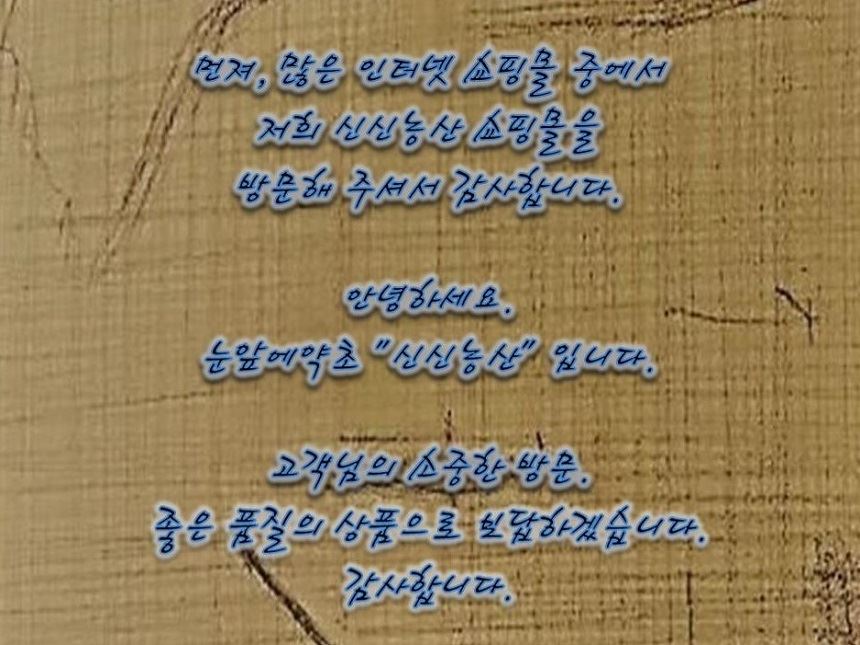 먼져, 많은 인터넷 쇼핑몰 중에서
저희 신신농산 쇼핑몰을
방문해 주셔서 감사합니다.
안녕하세요.
눈앞에약초 "신신농산" 입니다.
고객님의 소중한 방문.
좋은 품질의 상품으로 보답하겠습니다.
감사합니다.